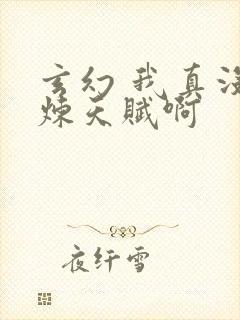 玄幻 我真没
炼天赋啊
夜纤雪